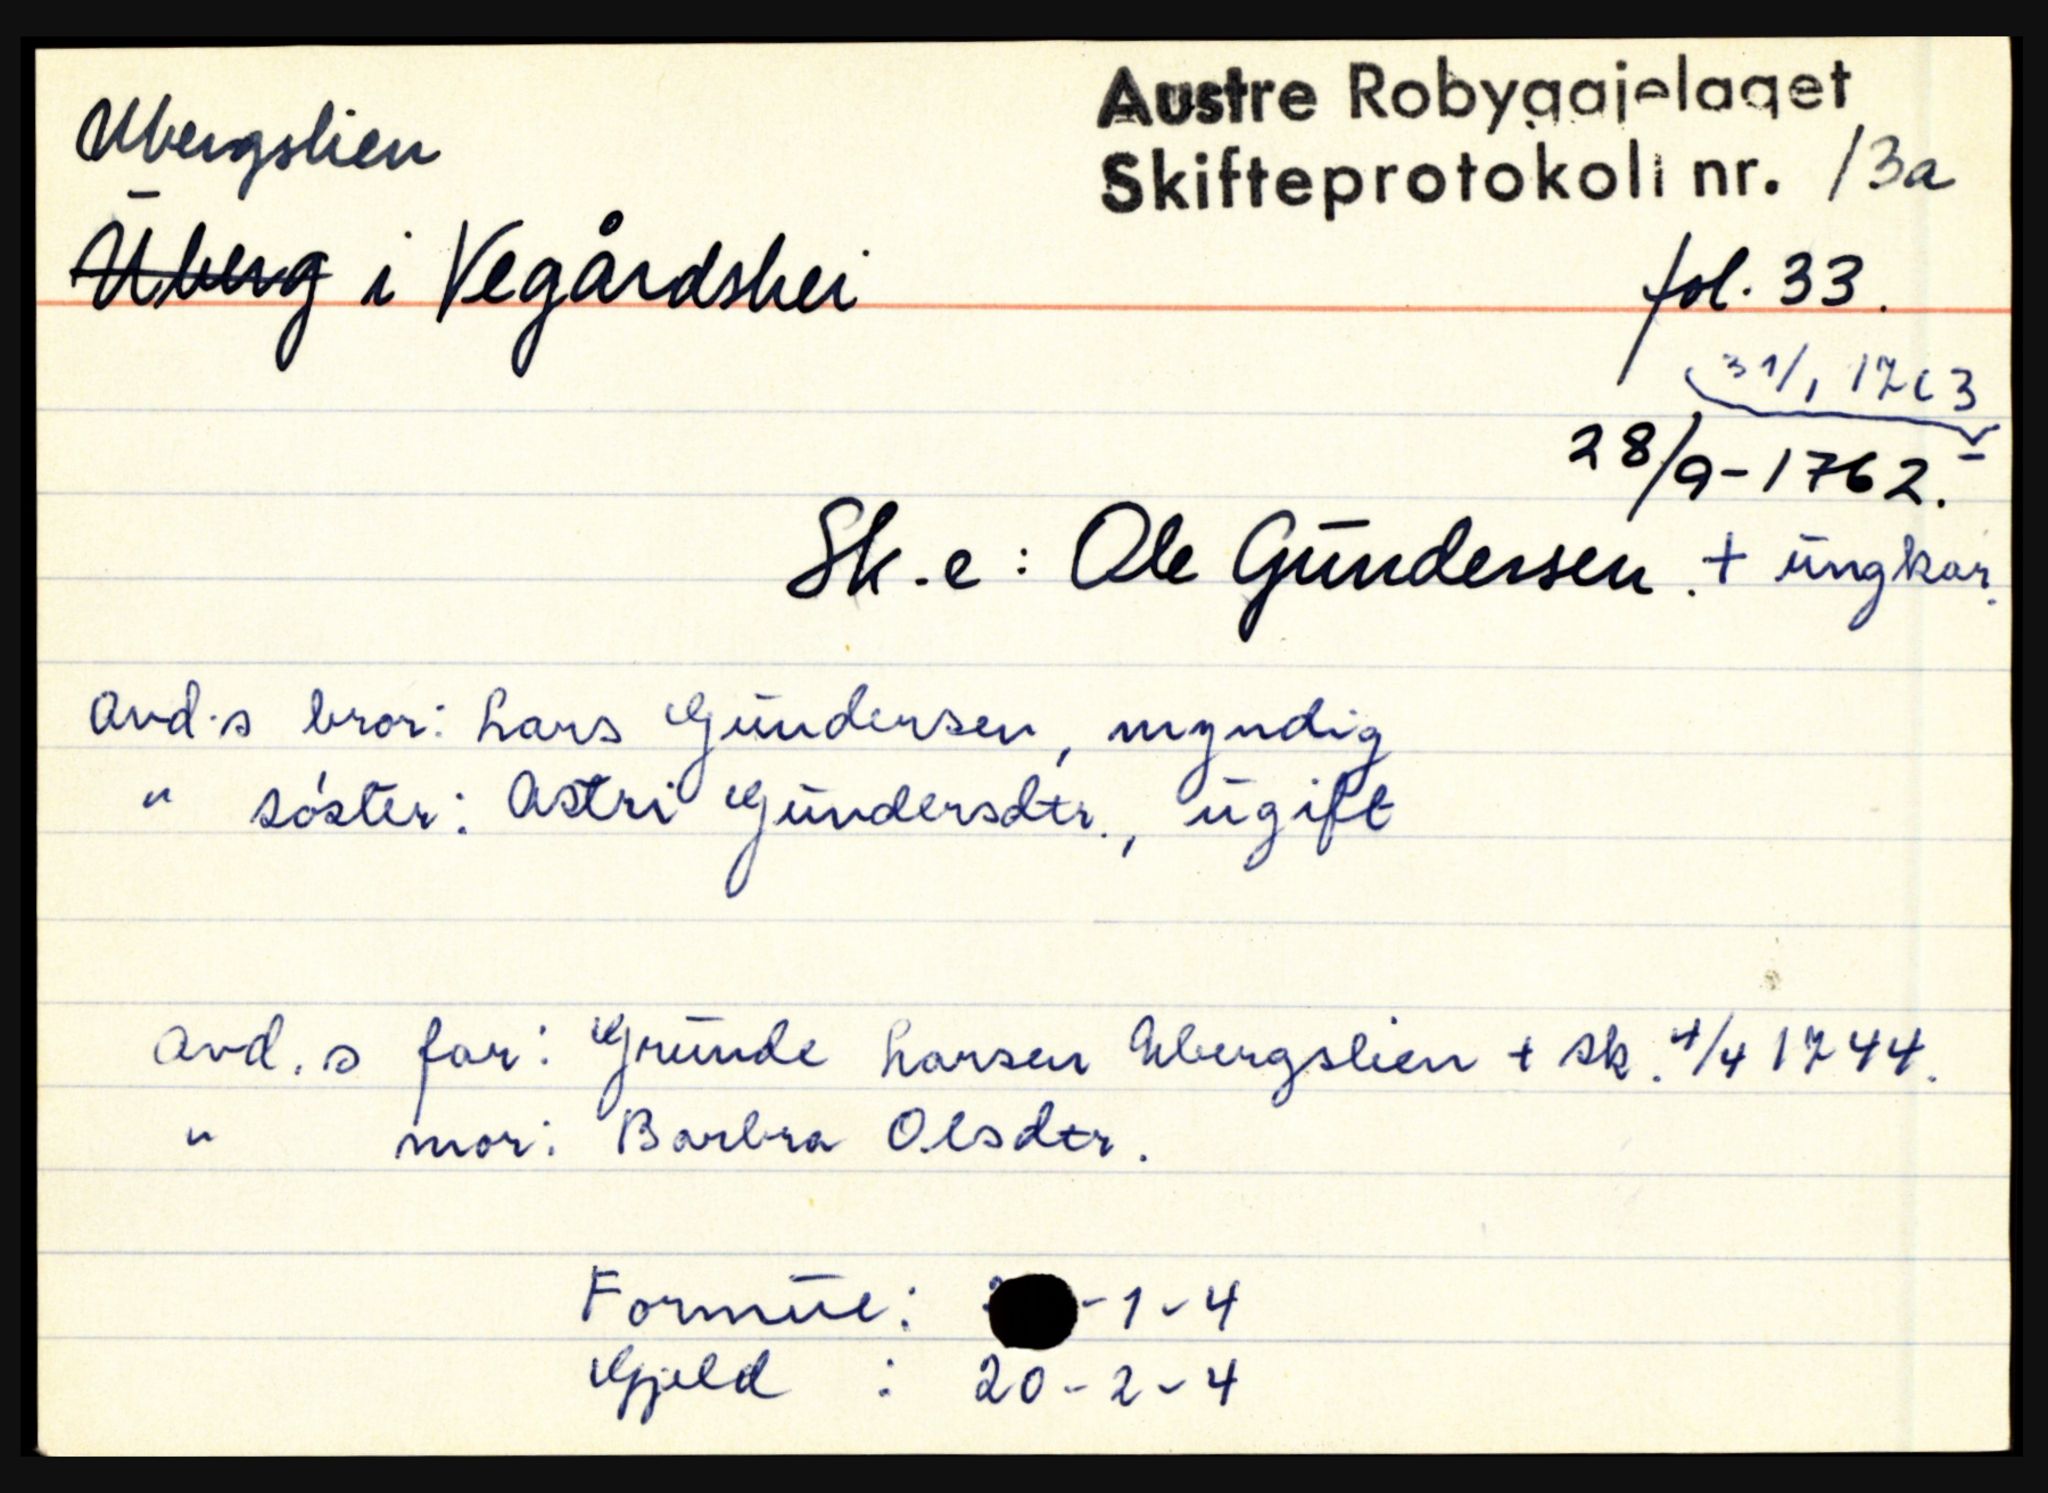 Austre Robyggjelaget
Skifteprotokoll nr. 13a
Ubergslien
Uberg i Vegårdshei
fol. 33.
31/1 1763
28/9-1762.
Sk.e: Ole Gundersen. + ungkar.
Avd.s bror: Lars Gundersen, myndig
" söster: Astri Gundersdtr., ugift
Avd.s far: Grunde Larsen Ubergslien + sk. 4/4 1744.
" mor: Barbra Olsdtr.
Formue: -1-4
Gjeld : 20-2-4